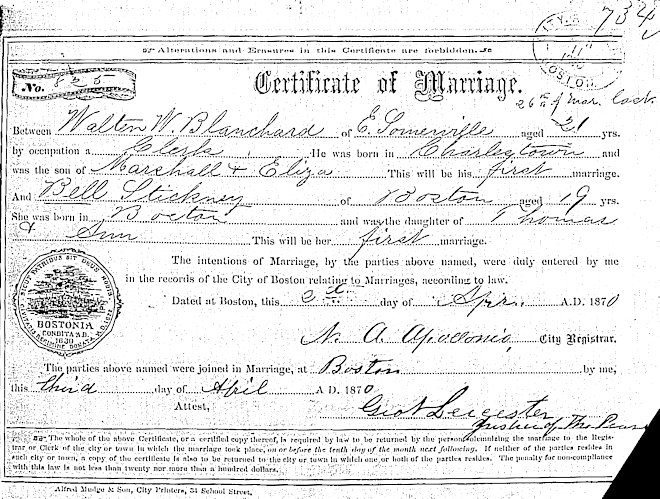 734
BOSTON
Alterations and Erasures in this Certificate are forbidden.
No. 625
Certificate of Marriage.
26th of Mar. last
Between Walter W. Blanchard of E. Somerville aged 21 yrs.
by occupation a Clerk He was born in Charlestown and
was the son of Marshall & Eliza This will be his first marriage.
And Bell Stickney of Boston aged 19 yrs.
She was born in Boston and was the daughter of Thomas
& Ann This will be her first marriage.
The intentions of Marriage, by the parties above named, were duly entered by me
in the records of the City of Boston relating to Marriages, according to law.
Dated at Boston, this 2d day of Apr. A.D. 1870
N. A. Apollonio, City Registrar.
BOSTONIA
CONDITA A.D.
1630
The parties above named were joined in Marriage, at Boston by me,
this third day of April A D. 1870
Attest, Geo N Leicester
Justice of The Peace
The whole of the above Certificate, or a certified copy thereof, is required by law to be returned by the person solemnizing the marriage to the Regis-
trar or Clerk of the city or town in which the marriage took place, on or before the tenth day of the month next following. If neither of the parties resides in
such city or town, a copy of the certificate is also to be returned to the city or town in which one or both of the parties resides. The penalty for non-compliance
with this law is not less than twenty nor more than a hundred dollars.
Alfred Mudge & Son, City Printers, 34 School Street,